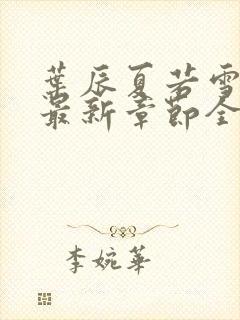 葉辰夏若雪
最新章節全
李婉華